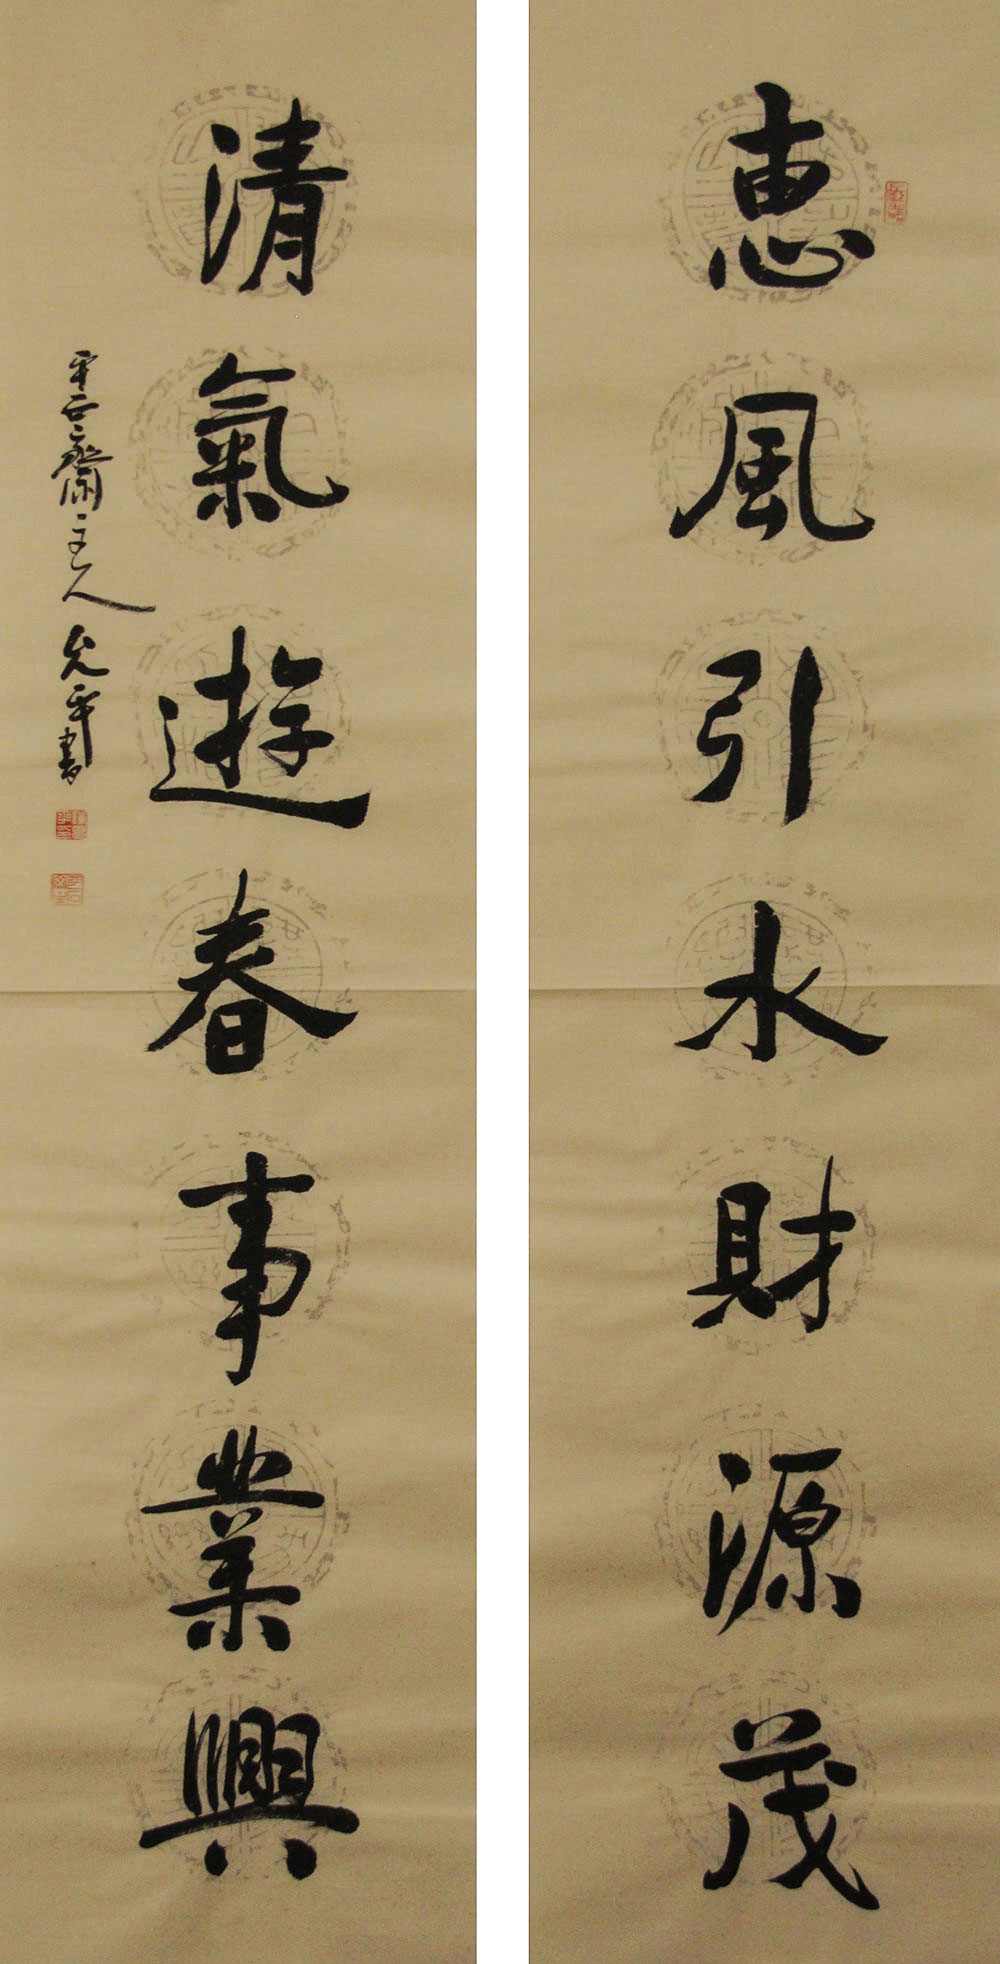 恵風引水財源茂
清氣遊春事業興
平石齋主人允平書